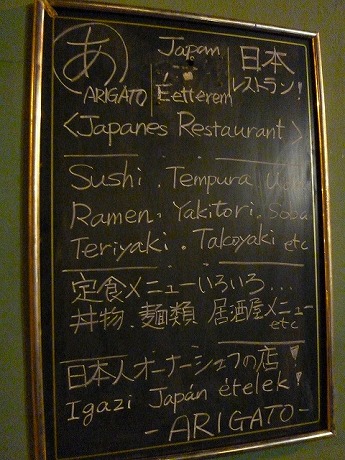 あ Japán 日本
ARIGATO Étterem レストラン!
<Japanes Restaurant>
Sushi. Tempura Udon
Ramen. Yakitori. Soba
Teriyaki. Takoyaki etc
定食メニューいろいろ...
丼物. 麺類 居酒屋メニュー
etc
日本人オーナーシェフの店!
Igazi Japán ételek!
- ARIGATO -